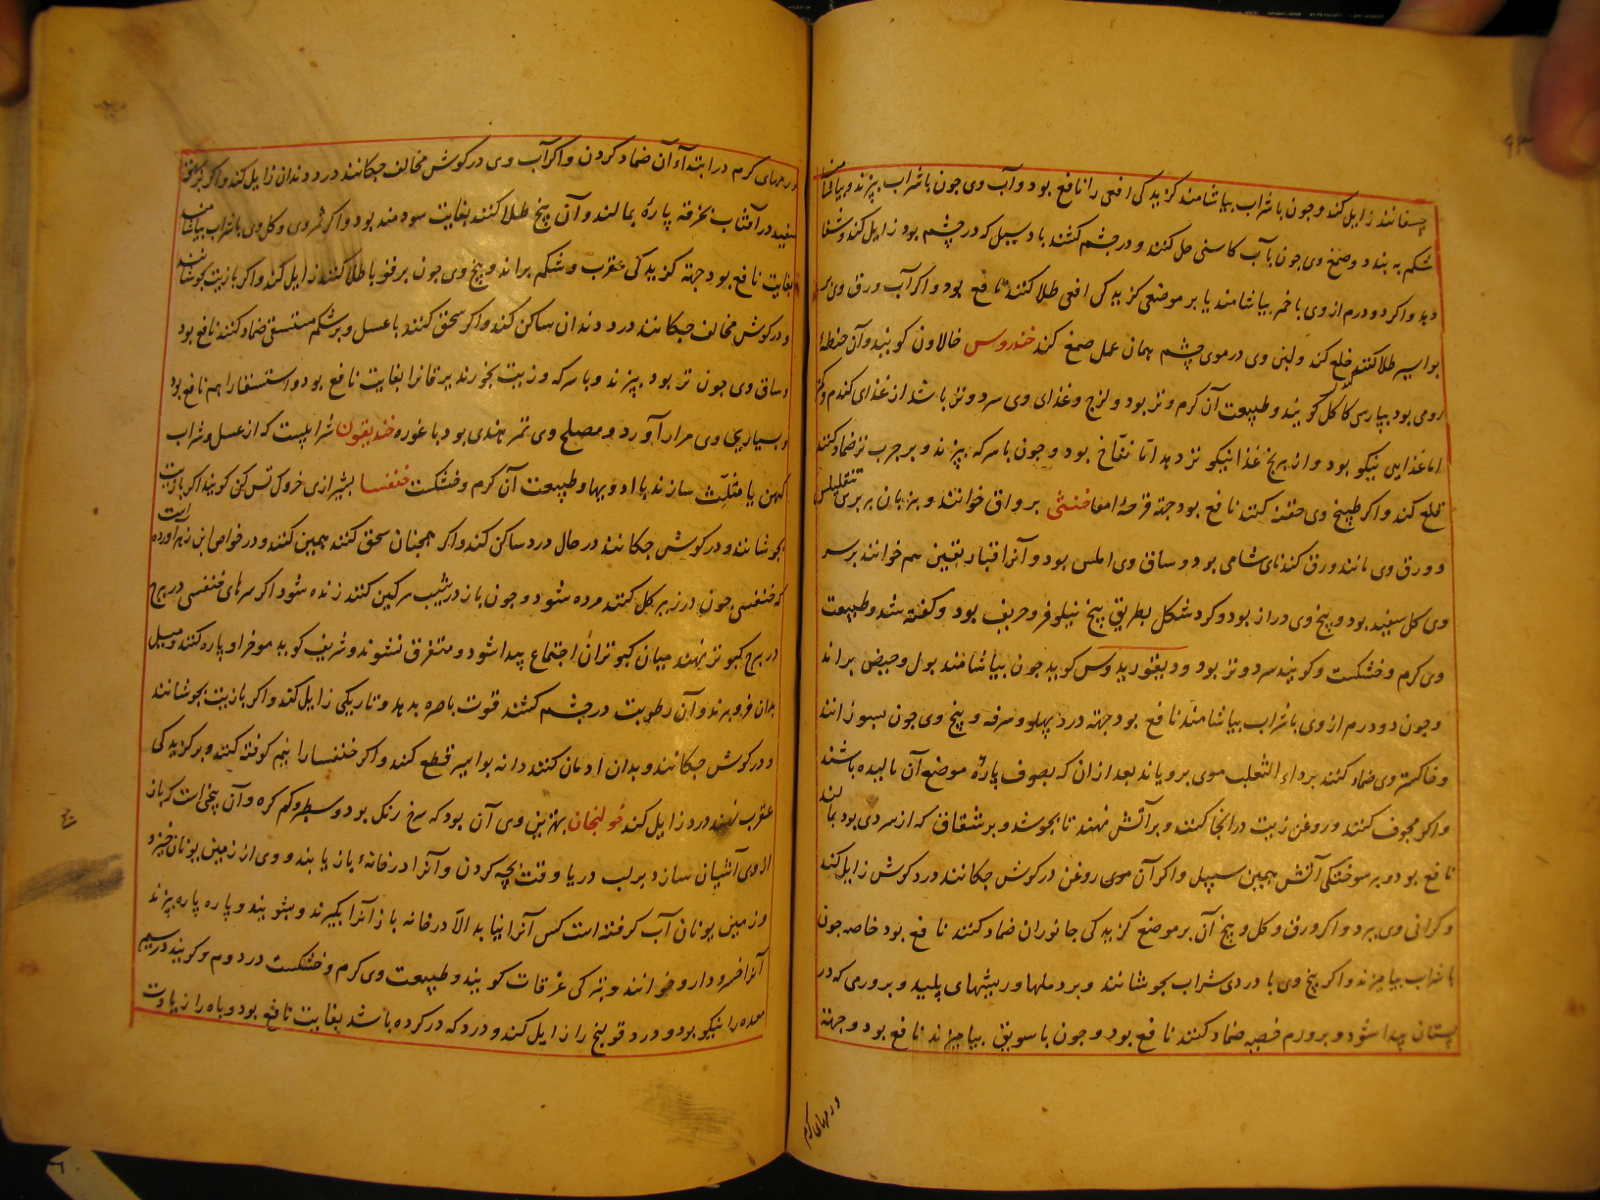 چسفانند زایل کند و چون با شراب بیاشامند کزیدکی افعی را نافع بود و آب وی چون با شراب بپزند و بیاشامند
شکم به بندد و صمغ وی چون بآب کاسنی حل کنند و در چشم کشند باد سبل که در چشم بود زایل کند و شفا
دهد و اکر دو درم از وی با خمر بیاشامند یا بر موضعی کزیدکی افعی طلا کنند نافع بود و اکر آب ورق وی بر
بواسیر طلا کنند خلع کند و لبن وی در موی چشم همان عمل صمغ کند خندروس خالاون کویند و آن حنطهٔ
رومی بود بپارسی کاکل کویند و طبیعت آن کرم و تر بود و لزج و غذای وی سرد و تر باشد از غذای کندم و کمتر
اما غذایی نیکو بود و از برنج غذا نیکوتر دهد اما نفاخ بود و چون با سرکه بپزند و بر جرب تر ضماد کنند
قلع کند و اکر طبیخ وی حقنه کنند نافع بود جهة قرحهٔ امعا خنثی برواق خوانند و بزبان بربری تتقلیلس
و ورق وی مانند ورق کندنای شامی بود و ساق وی املس بود و آنرا قنبار نقین هم خوانند بر سر
وی کل سفید بود و بیخ وی دراز بود و کرد شکل بطریق بیخ نیلوفر و حریف بود و کفته شد و طبیعت
وی کرم و خشکست و کویند سرد و تر بود و دیغوریدوس کوید چون بیاشامند بول و حیض براند
و چون دو درم از وی با شراب بیاشامند نافع بود جهة درد پهلو و سرفه و بیخ وی چون بسوزانند
و خاکستر وی ضماد کنند بر داء الثعلب موی برویاند بعد از ان که بصوف پارهٔ موضع آن مالیده باشند
و اکر مجوف کنند و روغن زیت در آنجا کنند و بر آتش نهند تا بجوشد و بر شقاق که از سردی بود بمالند
نافع بود و بر سوختکی آتش همین سبیل و اکر آن موی روغن در کوش چکانند درد کوش زایل کند
و کرانی وی ببرد و اکر ورق و کل و بیخ آن بر موضع کزیدکی جانوران ضماد کنند نافع بود خاصه چون
با شراب بیامیزند و اکر بیخ وی با دردی شراب بجوشانند و بر دملها و ریشهای پلید و بر ورمی که در
پستان پیدا شود و بر ورم خصیه ضماد کنند نافع بود و چون با سویق بیامیزند نافع بود و جهة
ورمهای کرم
ورمهای کرم در ابتداء آن ضماد کردن و اکر آب وی در کوش مخالف چکانند درد دندان زایل کند و اکر بر بهق
سفید در آفتاب بخرقه پارهٔ بمالند و آن بیخ طلا کنند بغایت سودمند بود و اکر ثمر وی و کل وی با شراب بیاشامند
بغایت نافع بود جهة کزیدکی عقرب و شکم براند و بیخ وی چون بر قوبا طلا کنند زایل کند و اکر با زیت بجوشانند
و در کوش مخالف چکانند درد دندان ساکن کند و اکر سحق کنند با عسل و بر شکم مستسقی ضماد کنند نافع بود
و ساق وی چون تر بود بپزند و با سرکه و زیت بخورند یرقانرا بغایت نافع بود و استسقا را هم نافع بود
و بسیاری وی مرار آورد و مصلح وی تمر هندی بود با غوره خندیقون شرابیست که از عسل و شراب
کهن یا مثلث سازند با ادویها و طبیعت آن کرم و خشکست خنفسا بشیرازی خروک تس کن کویند اکر با زیت
بجوشانند و در کوش چکانند در حال درد ساکن کند و اکر همچنان سحق کنند همین کنند و در خواص ابن زهر آورده است
که خنفسی چون در زیر کل کنند مرده شود و چون باز در شیب سرکین کنند زنده شود اکر سرهای خنفسی در برج
در برج کبوتر نهند میان کبوتران اجتماع پیدا شود و متفرق نشوند و شریف کوید موخر او پاره کنند و میل
بدان فرو برند و آن رطوبت در چشم کشند قوت باصره بدهد و تاریکی زایل کند و اکر با زیت بجوشانند
و در کوش چکانند و بدان ادمان کنند دانه بواسیر قطع کند و اکر خنفسا را نیم کوفته کنند و بر کزیدکی
عقرب نهند درد زایل کند خولنجان بهترین وی آن بود که سرخ رنک بود و سطبر و کم کره و آن بیخی است که باز
از وی آشیان سازد بر لب دریا وقت بچه کردن و آنرا در خانهٔ باز یابند و وی از زمین یونان خیزد
و زمین یونان آب کرفته است کس آنرا نیابد الا در خانه باز آنرا بکیرند و بشویند و پاره پاره ببرند
آنرا خسرو دارو خوانند و بترکی عرقات کویند و طبیعت وی کرم و خشکست در دوم و کویند در سیم
معده را نیکو بود و درد قولنج را زایل کند و درد که در کرده باشد بغایت نافع بود و باه را زیادت